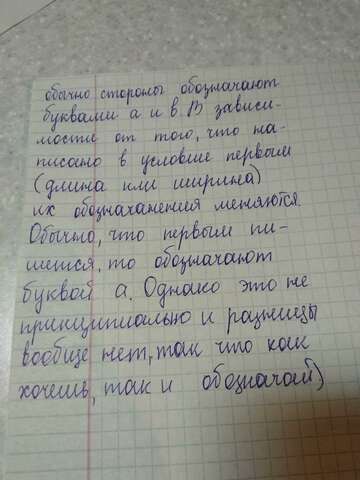 обычно стороны обозначают
буквами а и в. В зависи-
мости от того, что на-
писано в условие первым
(длина или ширина)
их обозначанения меняются.
Обычно, что первым пи-
шется, то обозначают
буквой а. Однако это не
принципиально и разницы
вообще нет, так что как
хочешь, так и обозначай)